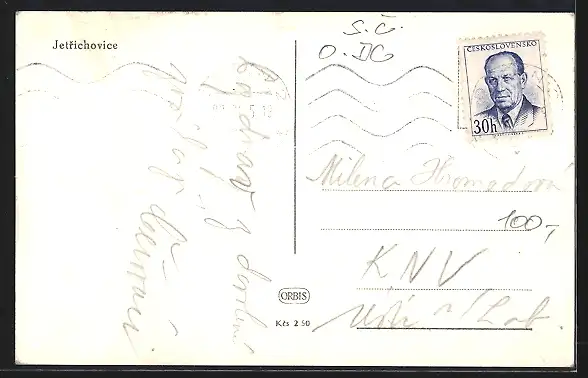 Jetřichovice
S.Č.
O. DC
ČESKOSLOVENSKO
30h
Pozdrav z dovolené
Milena Hromadová
100,-
KNV
Ústí n/Lab.
ORBIS
Kčs 2 50